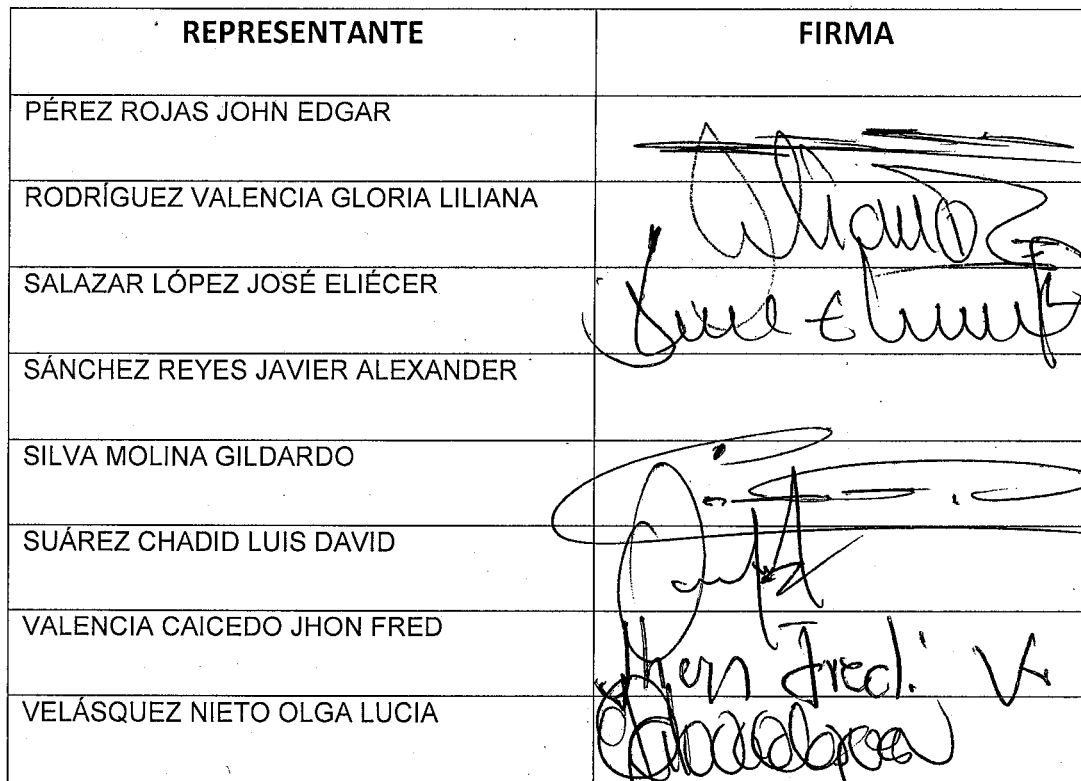 REPRESENTANTE FIRMA
PÉREZ ROJAS JOHN EDGAR
RODRÍGUEZ VALENCIA GLORIA LILIANA
SALAZAR LÓPEZ JOSÉ ELIÉCER
SÁNCHEZ REYES JAVIER ALEXANDER
SILVA MOLINA GILDARDO
SUÁREZ CHADID LUIS DAVID
VALENCIA CAICEDO JHON FRED
VELÁSQUEZ NIETO OLGA LUCIA